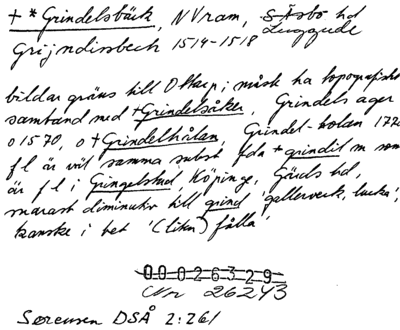 + * Grindelsbäck, N Vram, S Åsbo hd
Luggude
Grijndissbech 1514-1518
bildar gräns till Ottarp; måste ha topografiskt
samband med +Grindelsåker, Grindels ager
o 1570, o +Grindelhålan, Grindel-holan 177
f l är väl samma subst fda *grindil m som
är f l i Gringelstad, Köpinge, Gärds hd,
snarast diminutiv till grind 'gallerverk, lucka',
kanske i bet '(liten) fålla'
00026329
Nr 26243
Sørensen DSÅ 2:261